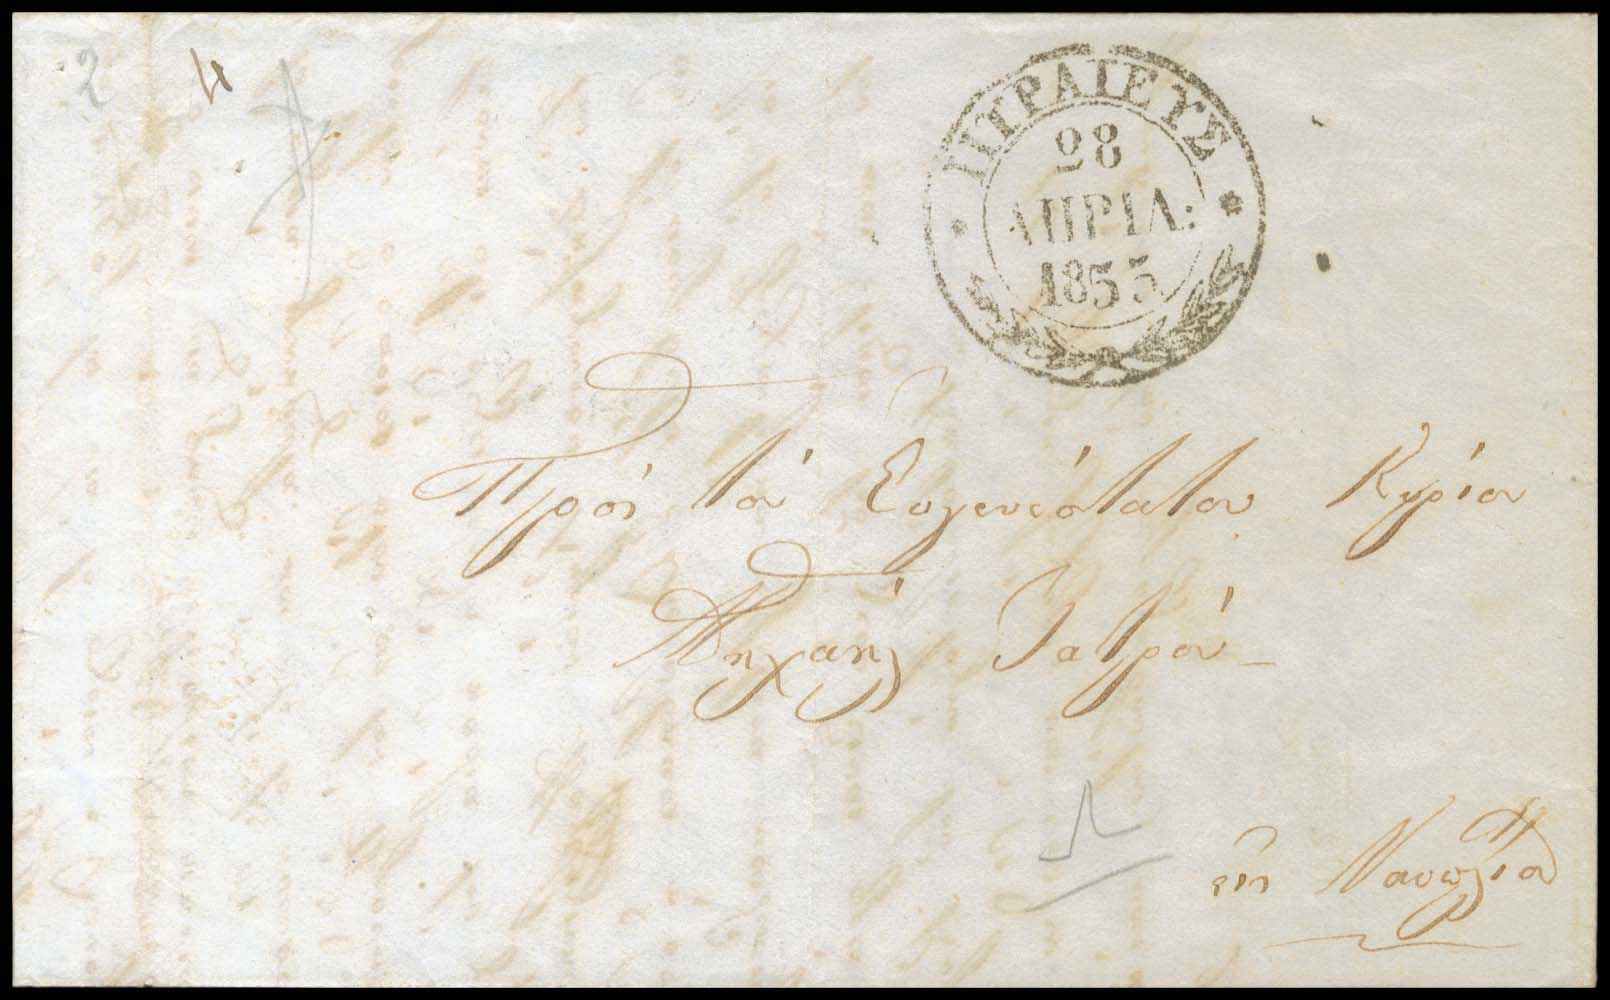 2
ΠΕΙΡΑΙΕΥΣ
28
ΑΠΡΙΛ:
1855
Πρὸς τὸν Ευγενέστατον Κύριον
Μηχαήλ Ιατρόν
εἰς Ναυπλίαν